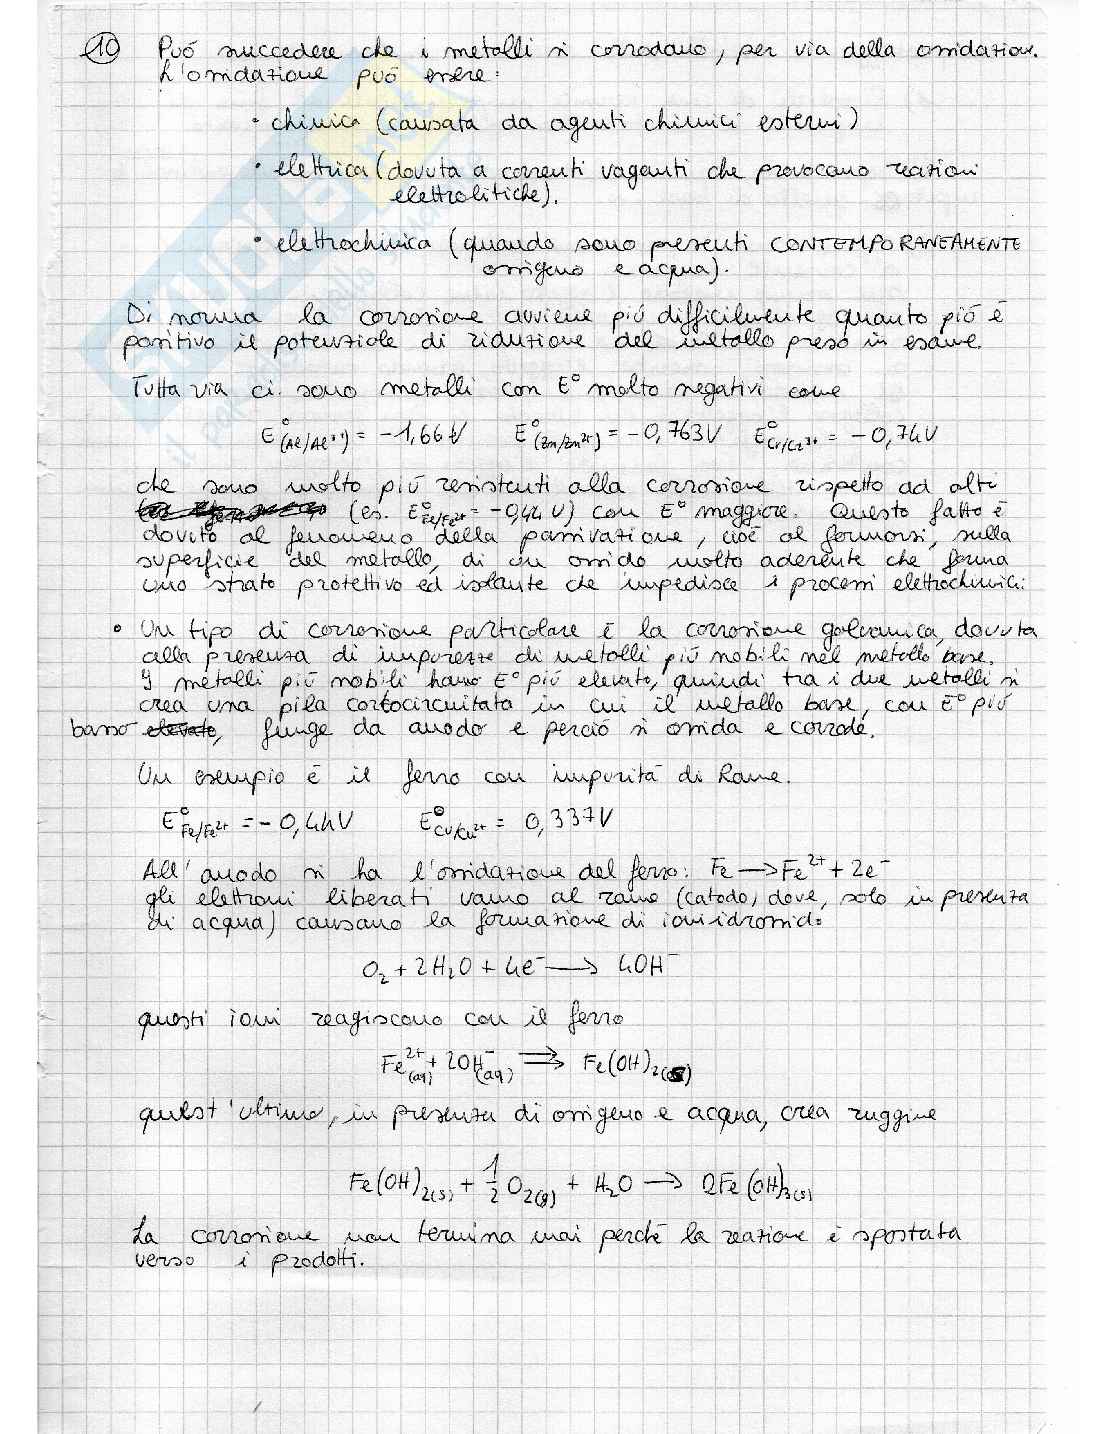 10 Può succedere che i metalli si corrodano, per via della ossidazione.
L'ossidazione può essere:
• chimica (causata da agenti chimici esterni)
• elettrica (dovuta a correnti vaganti che provocano reazioni
elettrolitiche).
• elettrochimica (quando sono presenti CONTEMPORANEAMENTE
ossigeno e acqua).
Di norma la corrosione avviene più difficilmente quanto più è
positivo il potenziale di riduzione del metallo preso in esame.
Tutta via ci sono metalli con E° molto negativi come
E°(Al/Al³⁺) = -1,66V E°(Zn/Zn²⁺) = -0,763V E°Cr/Cr³⁺ = -0,74V
che sono molto più resistenti alla corrosione rispetto ad altri
(es. E°Fe/Fe²⁺ = -0,44V) con E° maggiore. Questo fatto è
dovuto al fenomeno della passivazione, cioè al formarsi, sulla
superficie del metallo, di un ossido molto aderente che forma
uno strato protettivo ed isolante che impedisce i processi elettrochimici.
• Un tipo di corrosione particolare è la corrosione galvanica, dovuta
alla presenza di impurezze di metalli più nobili nel metallo base.
I metalli più nobili hanno E° più elevato, quindi tra i due metalli si
crea una pila cortocircuitata in cui il metallo base, con E° più
basso elevato, funge da anodo e perciò si ossida e corrode.
Un esempio è il ferro con impurità di Rame.
E°Fe/Fe²⁺ = -0,44V E°Cu/Cu²⁺ = 0,337V
All'anodo si ha l'ossidazione del ferro: Fe → Fe²⁺ + 2e⁻
gli elettroni liberati vanno al rame (catodo, dove, solo in presenza
di acqua) causano la formazione di ioni idrossido:
O₂ + 2H₂O + 4e⁻ → 4OH⁻
questi ioni reagiscono con il ferro
Fe²⁺(aq) + 2OH⁻(aq) ⇒ Fe(OH)₂(s)
quest'ultimo, in presenza di ossigeno e acqua, crea ruggine
Fe(OH)₂(s) + 1/2 O₂(g) + H₂O → 2Fe(OH)₃(s)
La corrosione non termina mai perché la reazione è spostata
verso i prodotti.